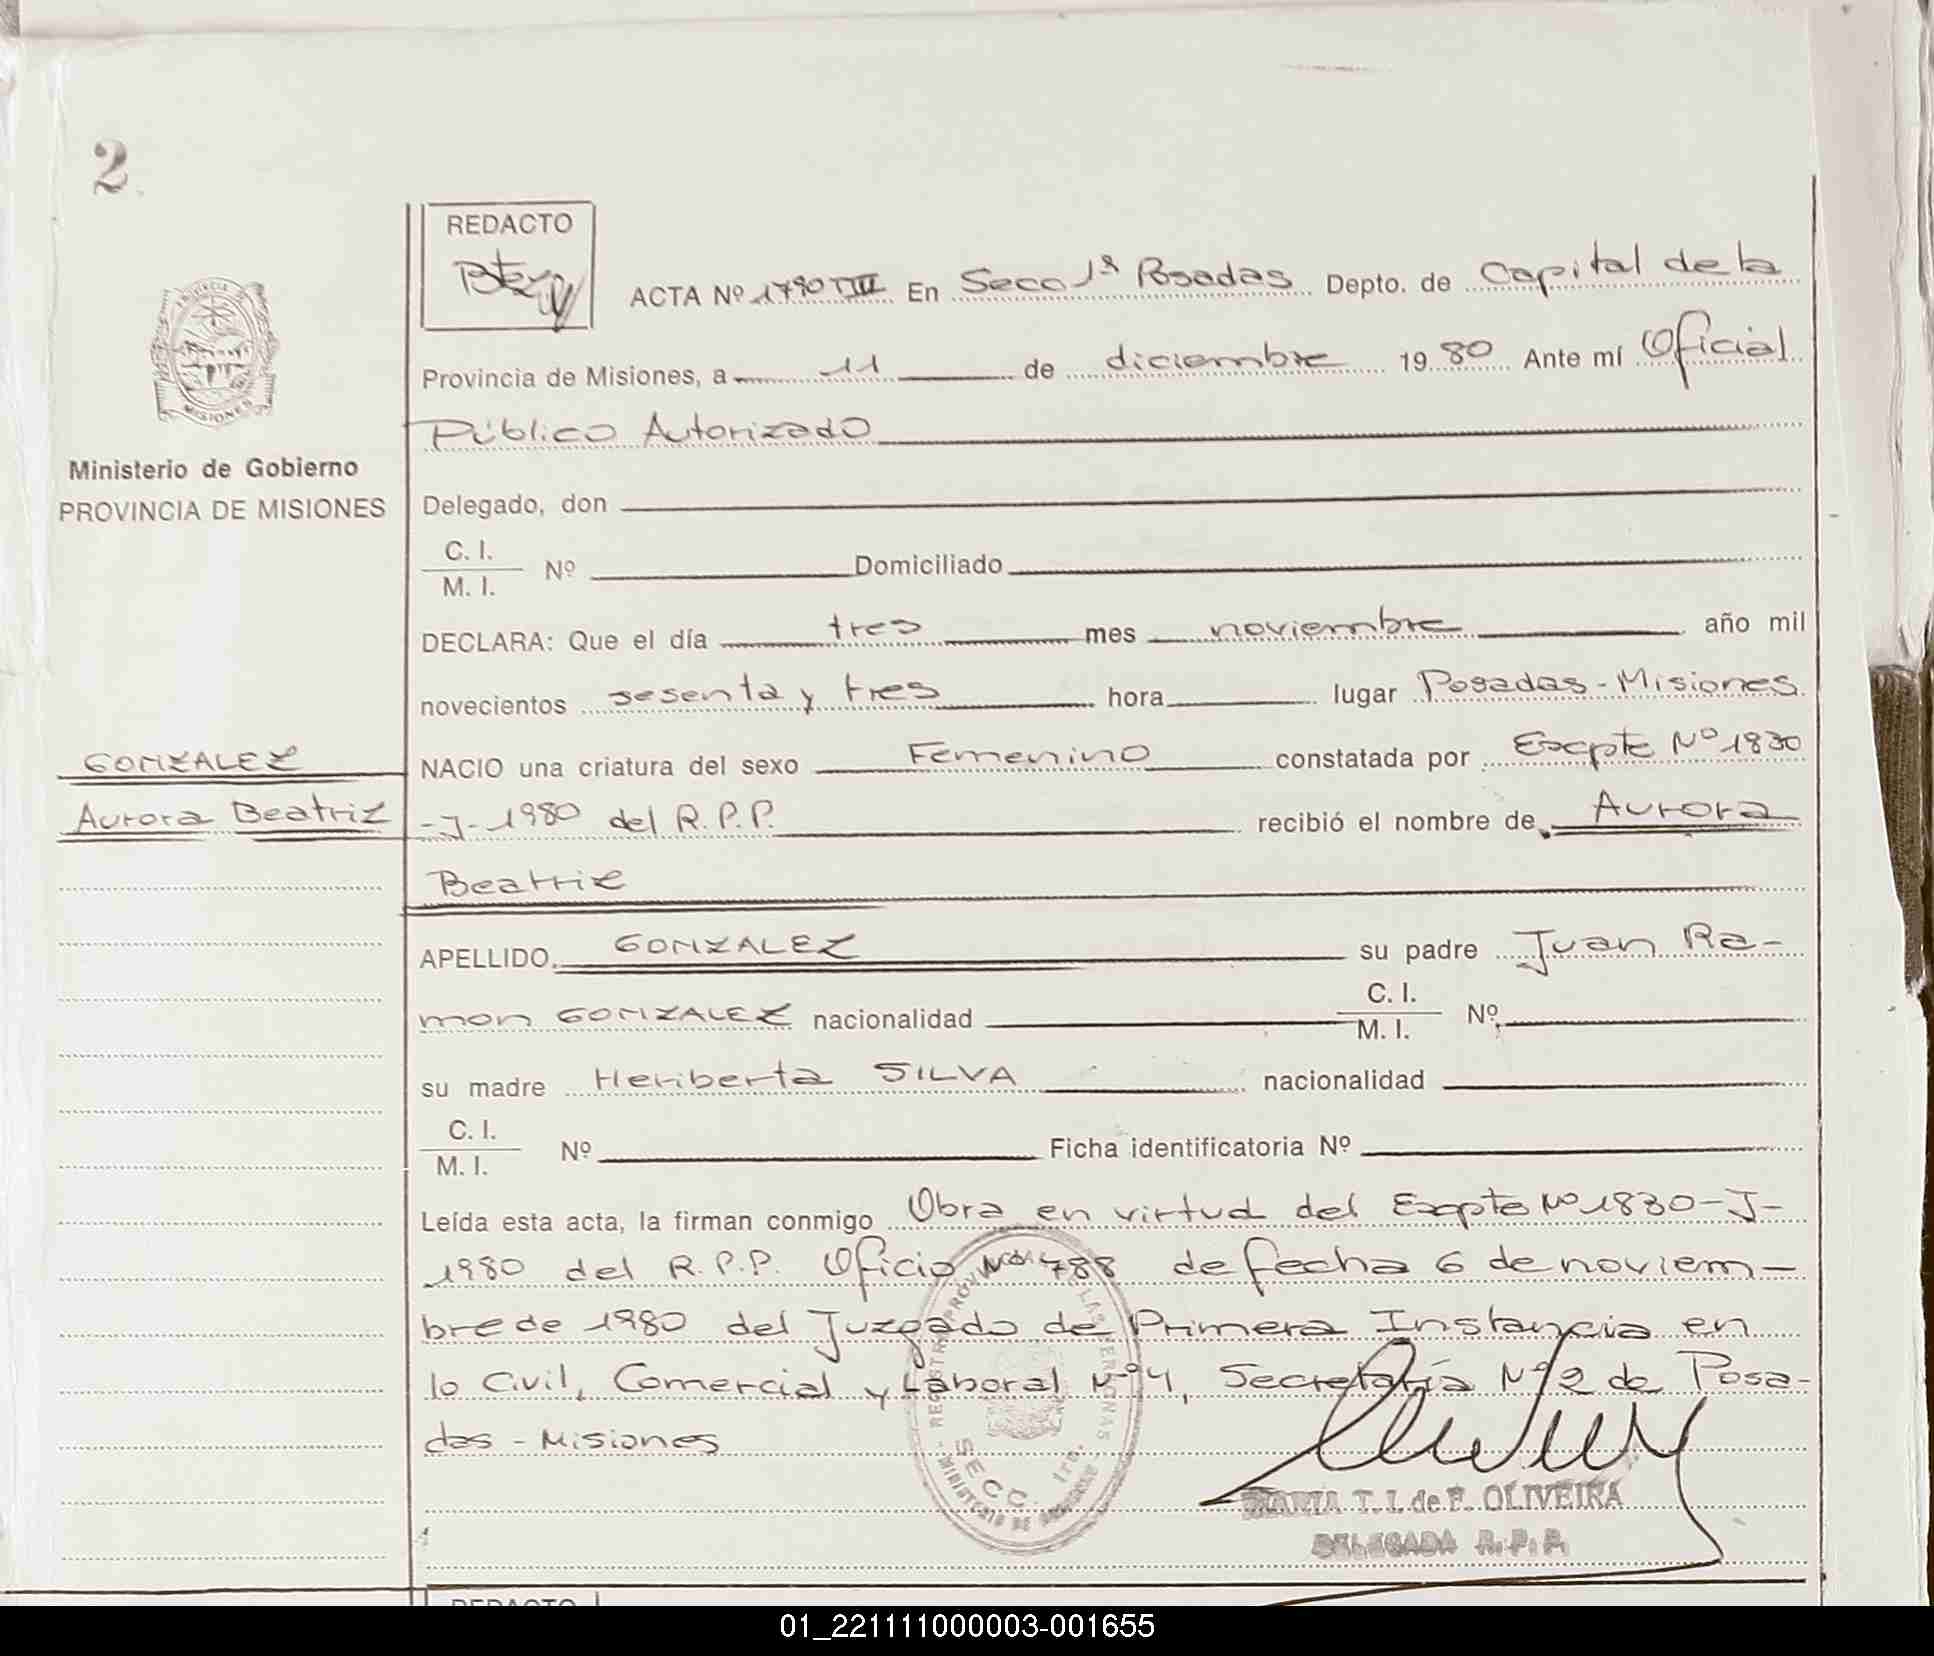 2
REDACTO
ACTA Nº 1790 TIII En Secc 1ª Posadas Depto. de Capital de la
Provincia de Misiones, a 11 de diciembre 1980 Ante mí Oficial
Público Autorizado
Ministerio de Gobierno
PROVINCIA DE MISIONES
Delegado, don
C. I.
M. I.
Nº Domiciliado
DECLARA: Que el día tres mes noviembre año mil
novecientos sesenta y tres hora lugar Posadas - Misiones
GONZALEZ
Aurora Beatriz
NACIO una criatura del sexo Femenino constatada por Expte Nº 1830
-J- 1980 del R.P.P. recibió el nombre de Aurora
Beatriz
APELLIDO GONZALEZ su padre Juan Ra-
mon GONZALEZ nacionalidad C. I. M. I. Nº
su madre Heriberta SILVA nacionalidad
C. I.
M. I.
Nº Ficha identificatoria Nº
Leída esta acta, la firman conmigo Obra en virtud del Expte Nº 1830-J-
1980 del R.P.P. Oficio Nº 1788 de fecha 6 de noviem-
bre de 1980 del Juzgado de Primera Instancia en
lo Civil, Comercial y Laboral Nº 4, Secretaría Nº 2 de Posa-
das - Misiones
SECC. 1ra.
MARIA T. I. de F. OLIVEIRA
DELEGADA R.P.P.
REDACTO
01_221111000003-001655